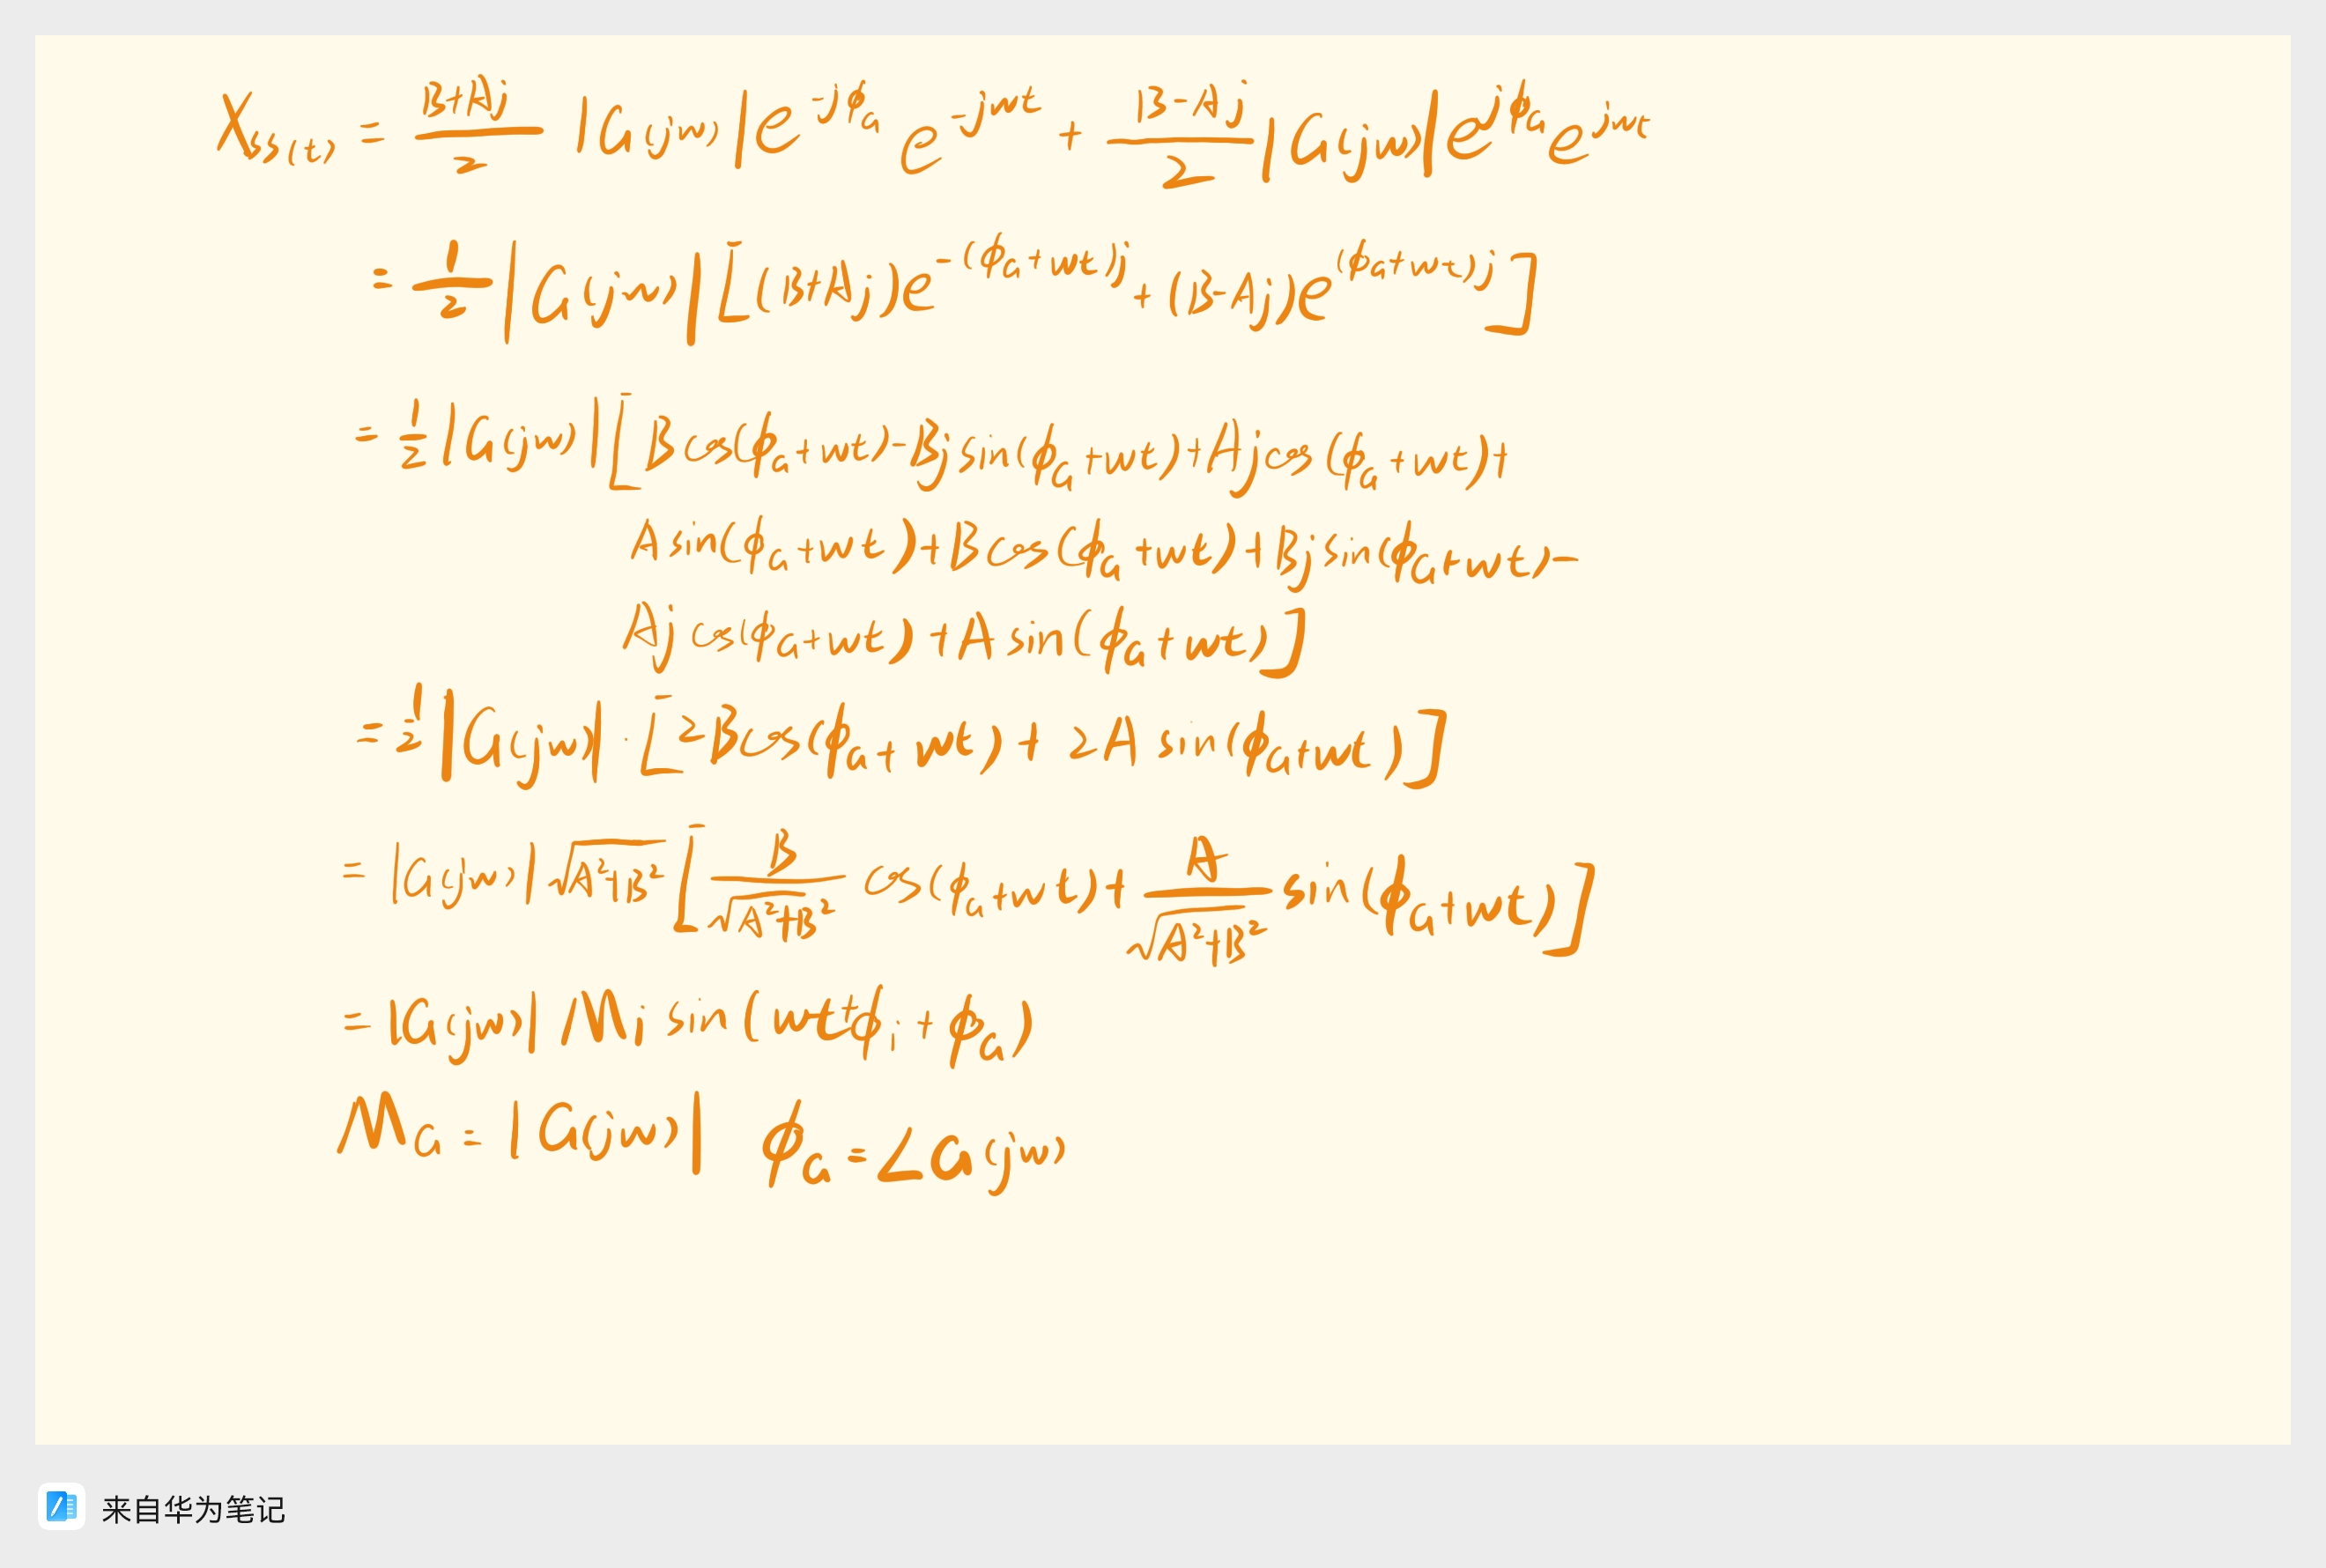 Xss(t) = (B+Aj)/2 |G(jw)| e^{-jϕ_G} e^{-jwt} + (B-Aj)/2 |G(jw)| e^{jϕ_G} e^{jwt}
= 1/2 |G(jw)| [(B+Aj)e^{-(ϕ_G+wt)j} + (B-Aj)e^{(ϕ_G+wt)j}]
= 1/2 |G(jw)| [Bcos(ϕ_G+wt)-Bjsin(ϕ_G+wt)+Ajcos(ϕ_G+wt)+
Asin(ϕ_G+wt)+Bcos(ϕ_G+wt)+Bjsin(ϕ_G+wt)-
Ajcos(ϕ_G+wt)+Asin(ϕ_G+wt)]
= 1/2 |G(jw)|·[2Bcos(ϕ_G+wt)+2Asin(ϕ_G+wt)]
= |G(jw)| √(A²+B²) [B/√(A²+B²) cos(ϕ_G+wt)+ A/√(A²+B²) sin(ϕ_G+wt)]
= |G(jw)| Mi sin(wt+ϕ_i+ϕ_G)
M_G = |G(jw)| ϕ_G = ∠G(jw)
来自华为笔记